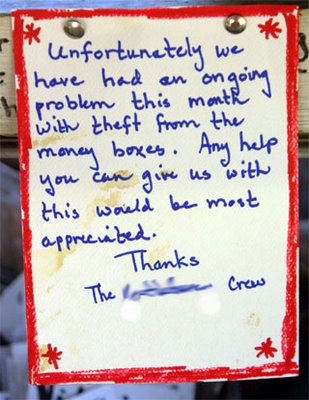 Unfortunately we
have had an ongoing
problem this month
with theft from the
money boxes. Any help
you can give us with
this would be most
appreciated.
Thanks
The Crew